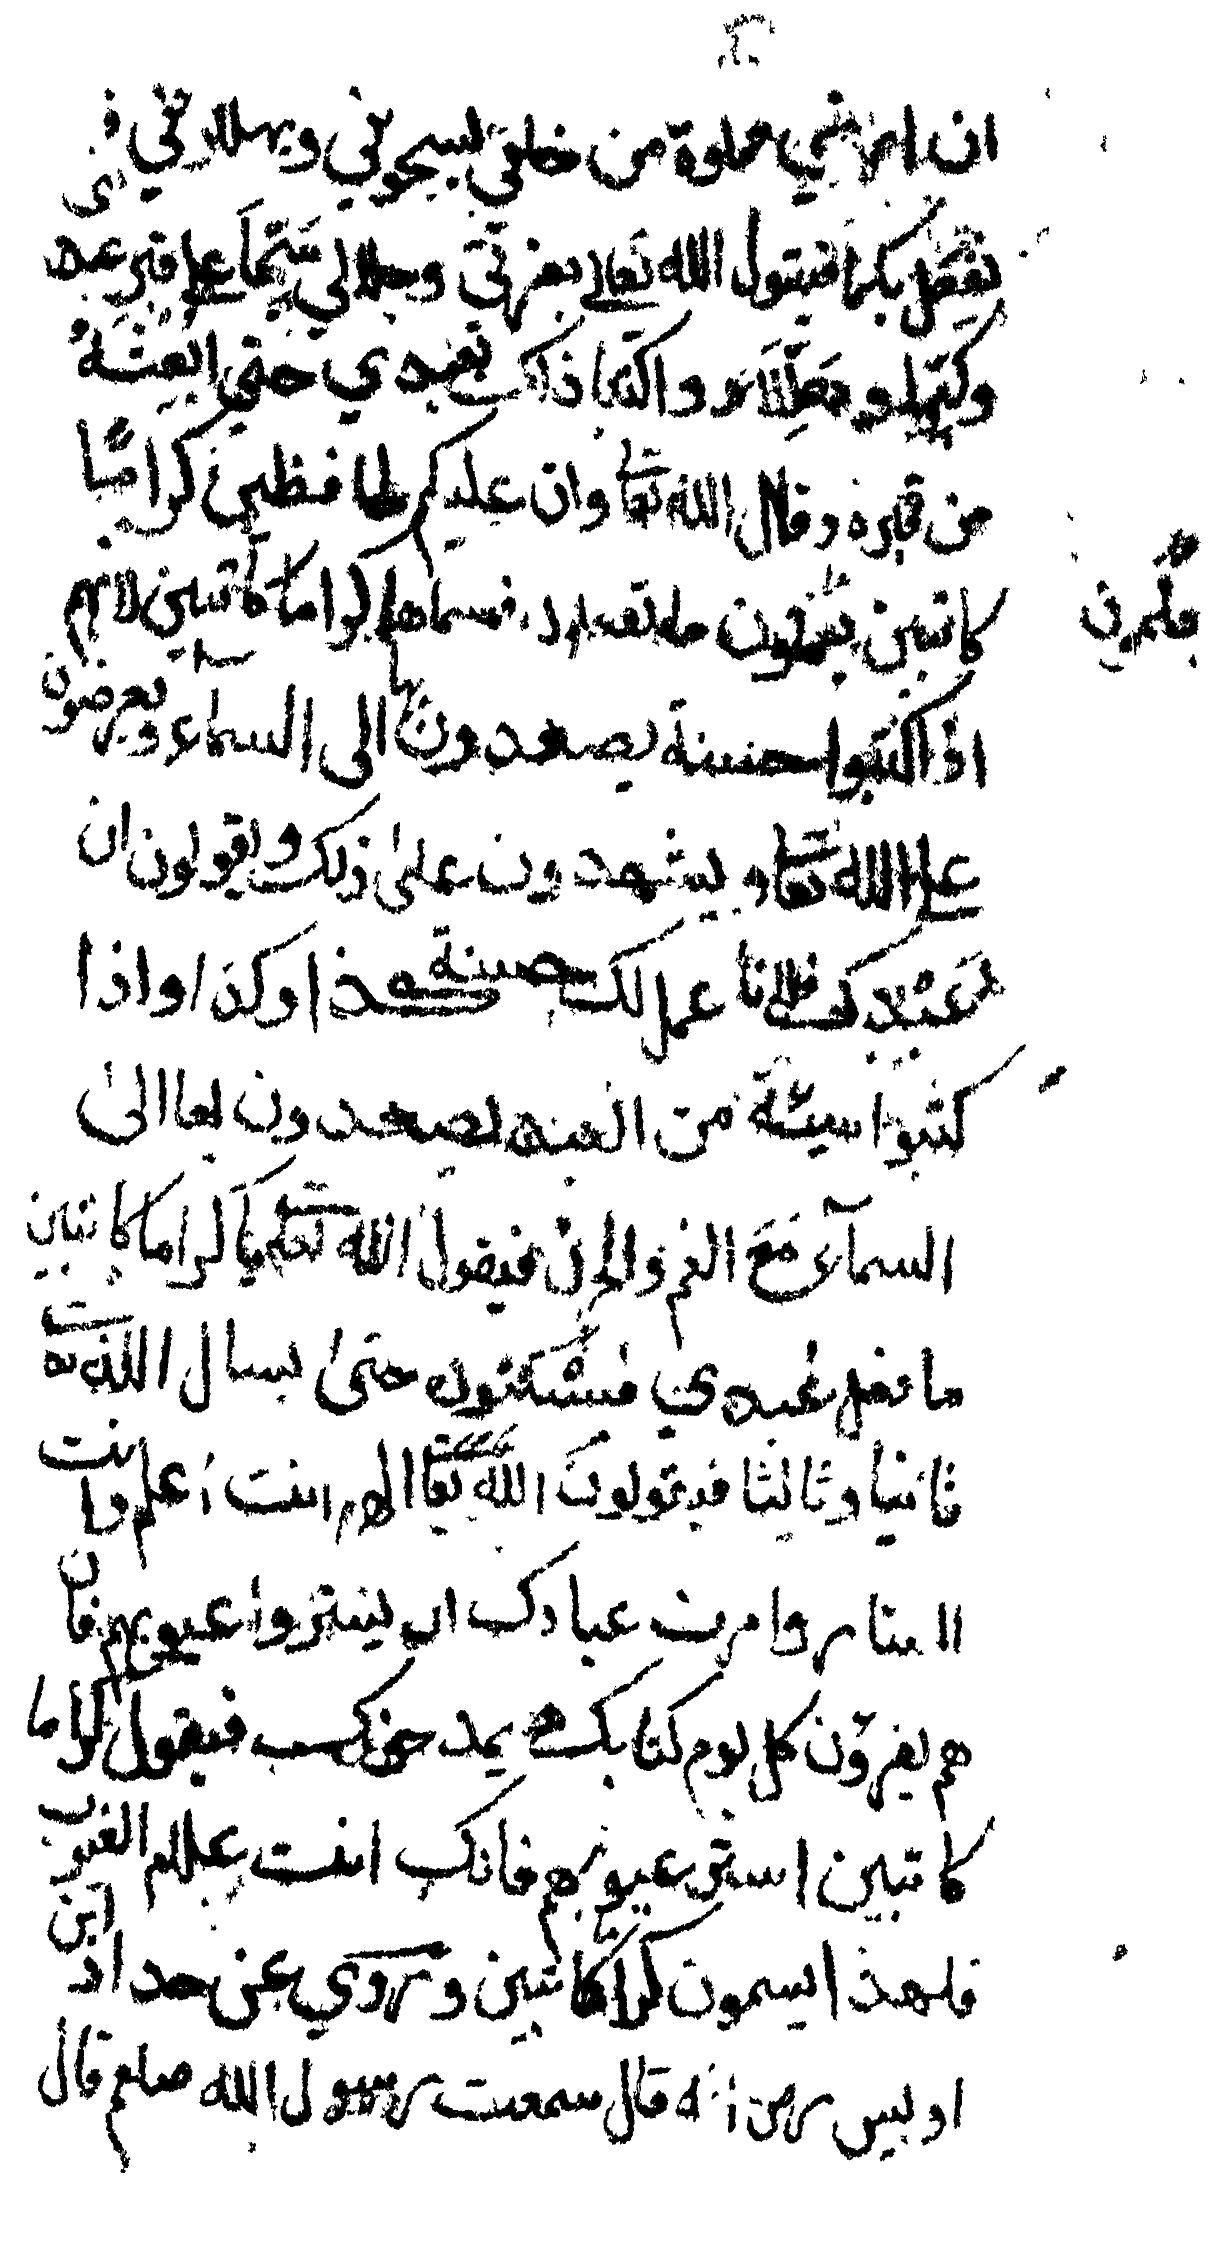 ان ارضي مملوة من خلقي يسبحوني ويهللوني فاي
نفعل بكما فيقول الله تعالى بعزتي وجلالي سبحا على قبر عبدي
وكبرا وهللا واكتبا ذلك لعبدي حتى ابعثه
من قبره وقال الله تعا وان عليكم لحافظين كراما
كاتبين يعلمون ما تفعلون فسماهم كراما كاتبين لانهم
اذا كتبوا حسنة يصعدون بها الى السماء ويعرضون
على الله تعا ويشهدون على ذلك ويقولون ان
عبدك فلانا عمل لك حسنة هذا وكذا واذا
كتبوا سيئة من العبد يصعدون بها الى
السماء مع الغم والحزن فيقول الله تعا يا كراما كاتبين
ما فعل عبدي فيسكتون حتى يسال الله ت
ثانيا وثالثا فيقولون الله تعا الهم انت اعلم وانت
الستار وامرت عبادك ان يستروا عيوبهم فان
هم يقرون كل يوم كتابك فيقول كراما
كاتبين استر عيوبهم فانك انت علام الغيوب
فلهذا يسمون كراما كاتبين وروي عن حداد ابن
اويس رض انه قال سمعت رسول الله صلعم قال